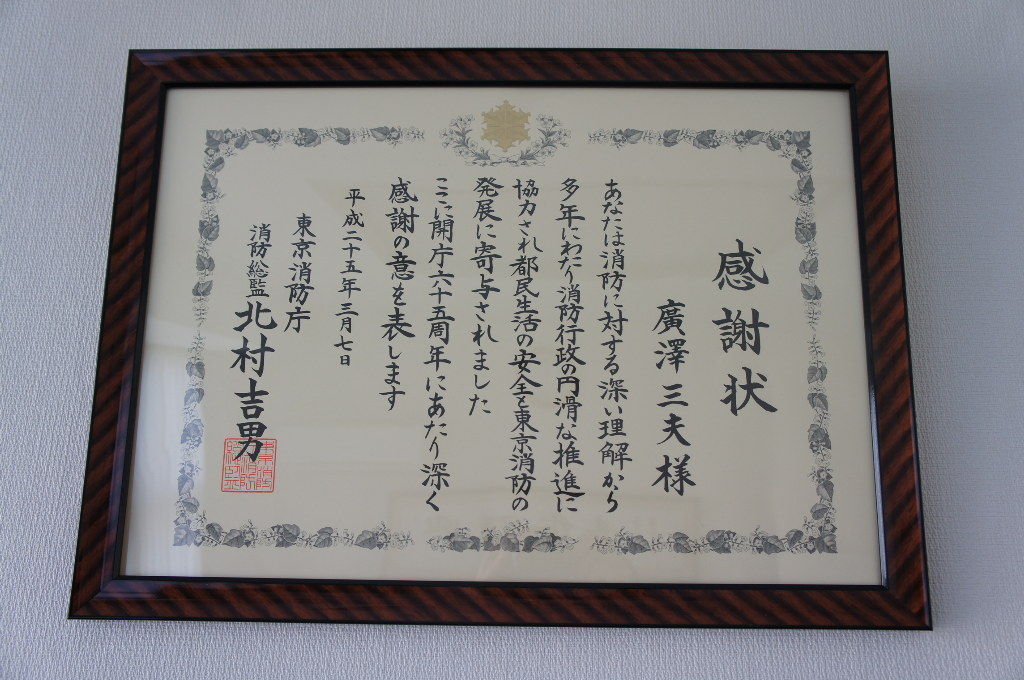 感謝状
廣澤三夫様
あなたは消防に対する深い理解から
多年にわたり消防行政の円滑な推進に
協力され都民生活の安全と東京消防の
発展に寄与されました
ここに開庁六十五周年にあたり深く
感謝の意を表します
平成二十五年三月七日
東京消防庁
消防総監 北村吉男